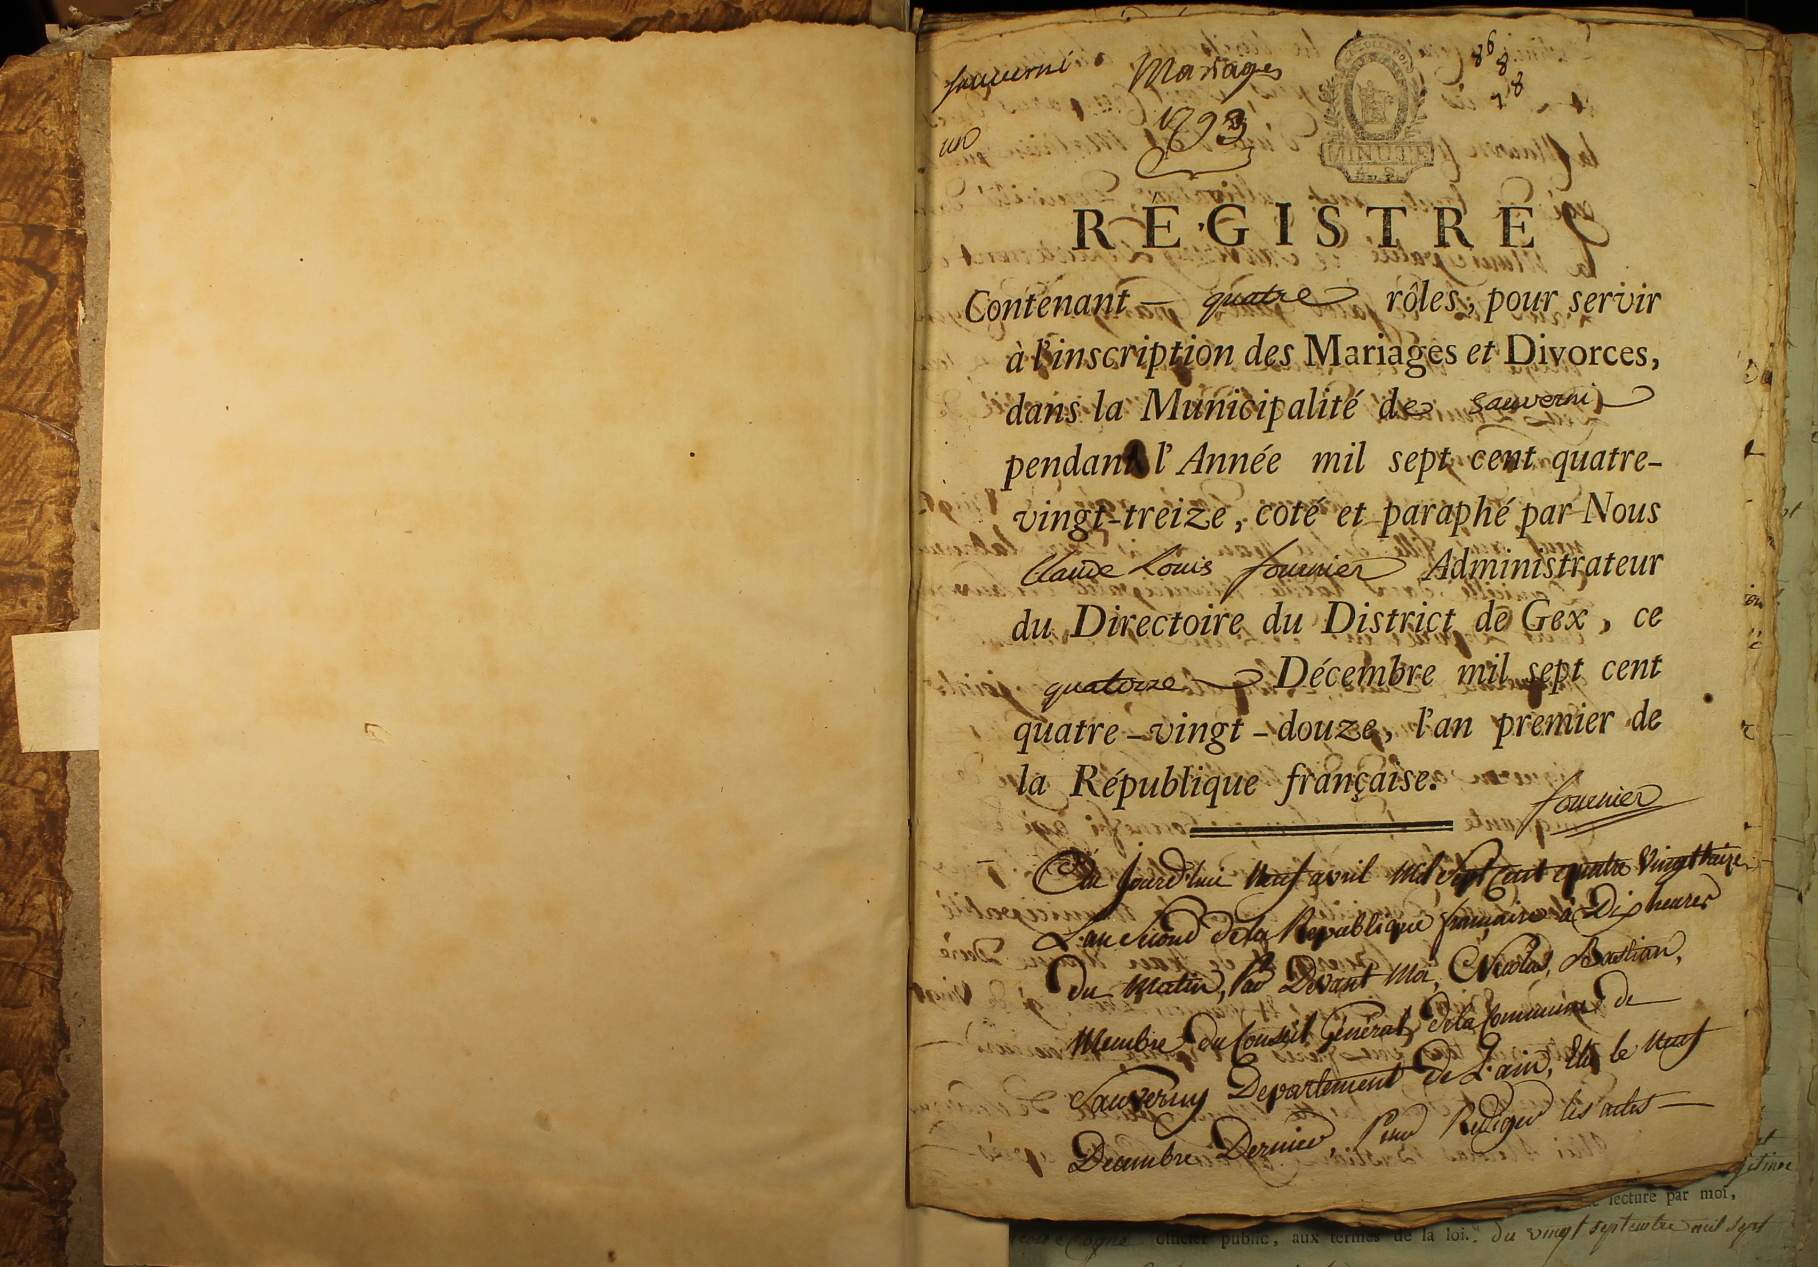 Sauverni
Mariages
un
1793
86
8
78
MINUTE
REGISTRE
Contenant quatre rôles, pour servir
à l'inscription des Mariages et Divorces,
dans la Municipalité de Sauverni
pendant l'Année mil sept cent quatre-
vingt-treize, coté et paraphé par Nous
Claude Louis fournier Administrateur
du Directoire du District de Gex, ce
quatorze Décembre mil sept cent
quatre-vingt-douze, l'an premier de
la République française.
fournier
Au jourd'hui Neuf avril Mil Sept Cent quatre Vingt treize
L'an second de la Republique francaise à Dix heures
du Matin, Par Devant Moi, Nicolas, Bastian,
Membre du Conseil Général, de la Commune de
Sauverny Departement de L'ain, Elu le Neuf
Decembre Dernier, Pour Rediger les actes
lecture par moi,
officier public, aux termes de la loi. du vingt septembre mil sept